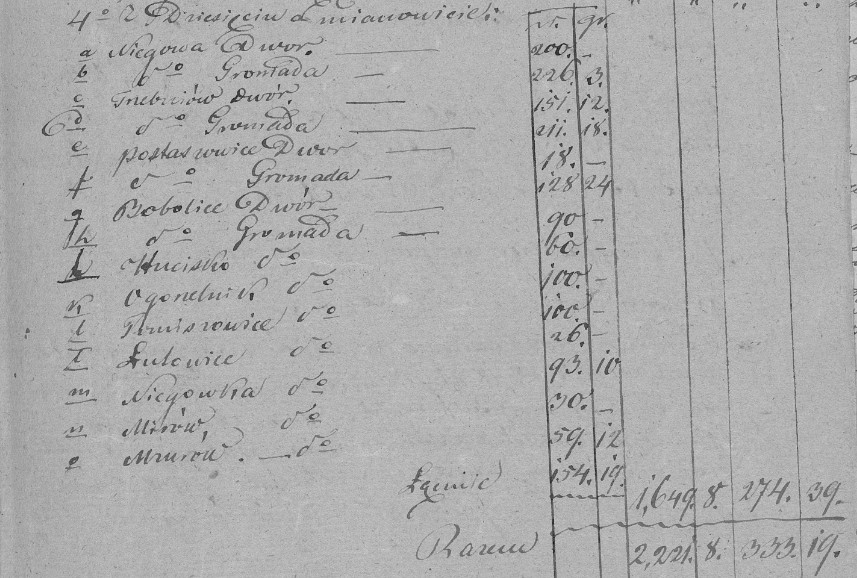 4º Z Dziesięcin a Imianowicie: zł. gr.
a Niegowa Dwór. — 200. –
b dº Gromada — 226. 3.
c Trzebniów Dwór. — 151. 12.
d dº Gromada — 211. 18.
e Postaszowice Dwor — 18. –
f dº Gromada — 128 24
g Bobolice Dwór — 90 –
h dº Gromada — 60. –
Hucisko dº 100. –
k Ogorzelnik dº 100. –
l Tomiszowice dº 26. –
ł Łutowice dº 93. 10
m Niegowka dº 30. –
n Mirów, dº 59. 12
o Mzurów. — dº 154. 19.
Łącznie 1,649. 8. 274. 39.
Razem 2,221. 8. 333. 19.